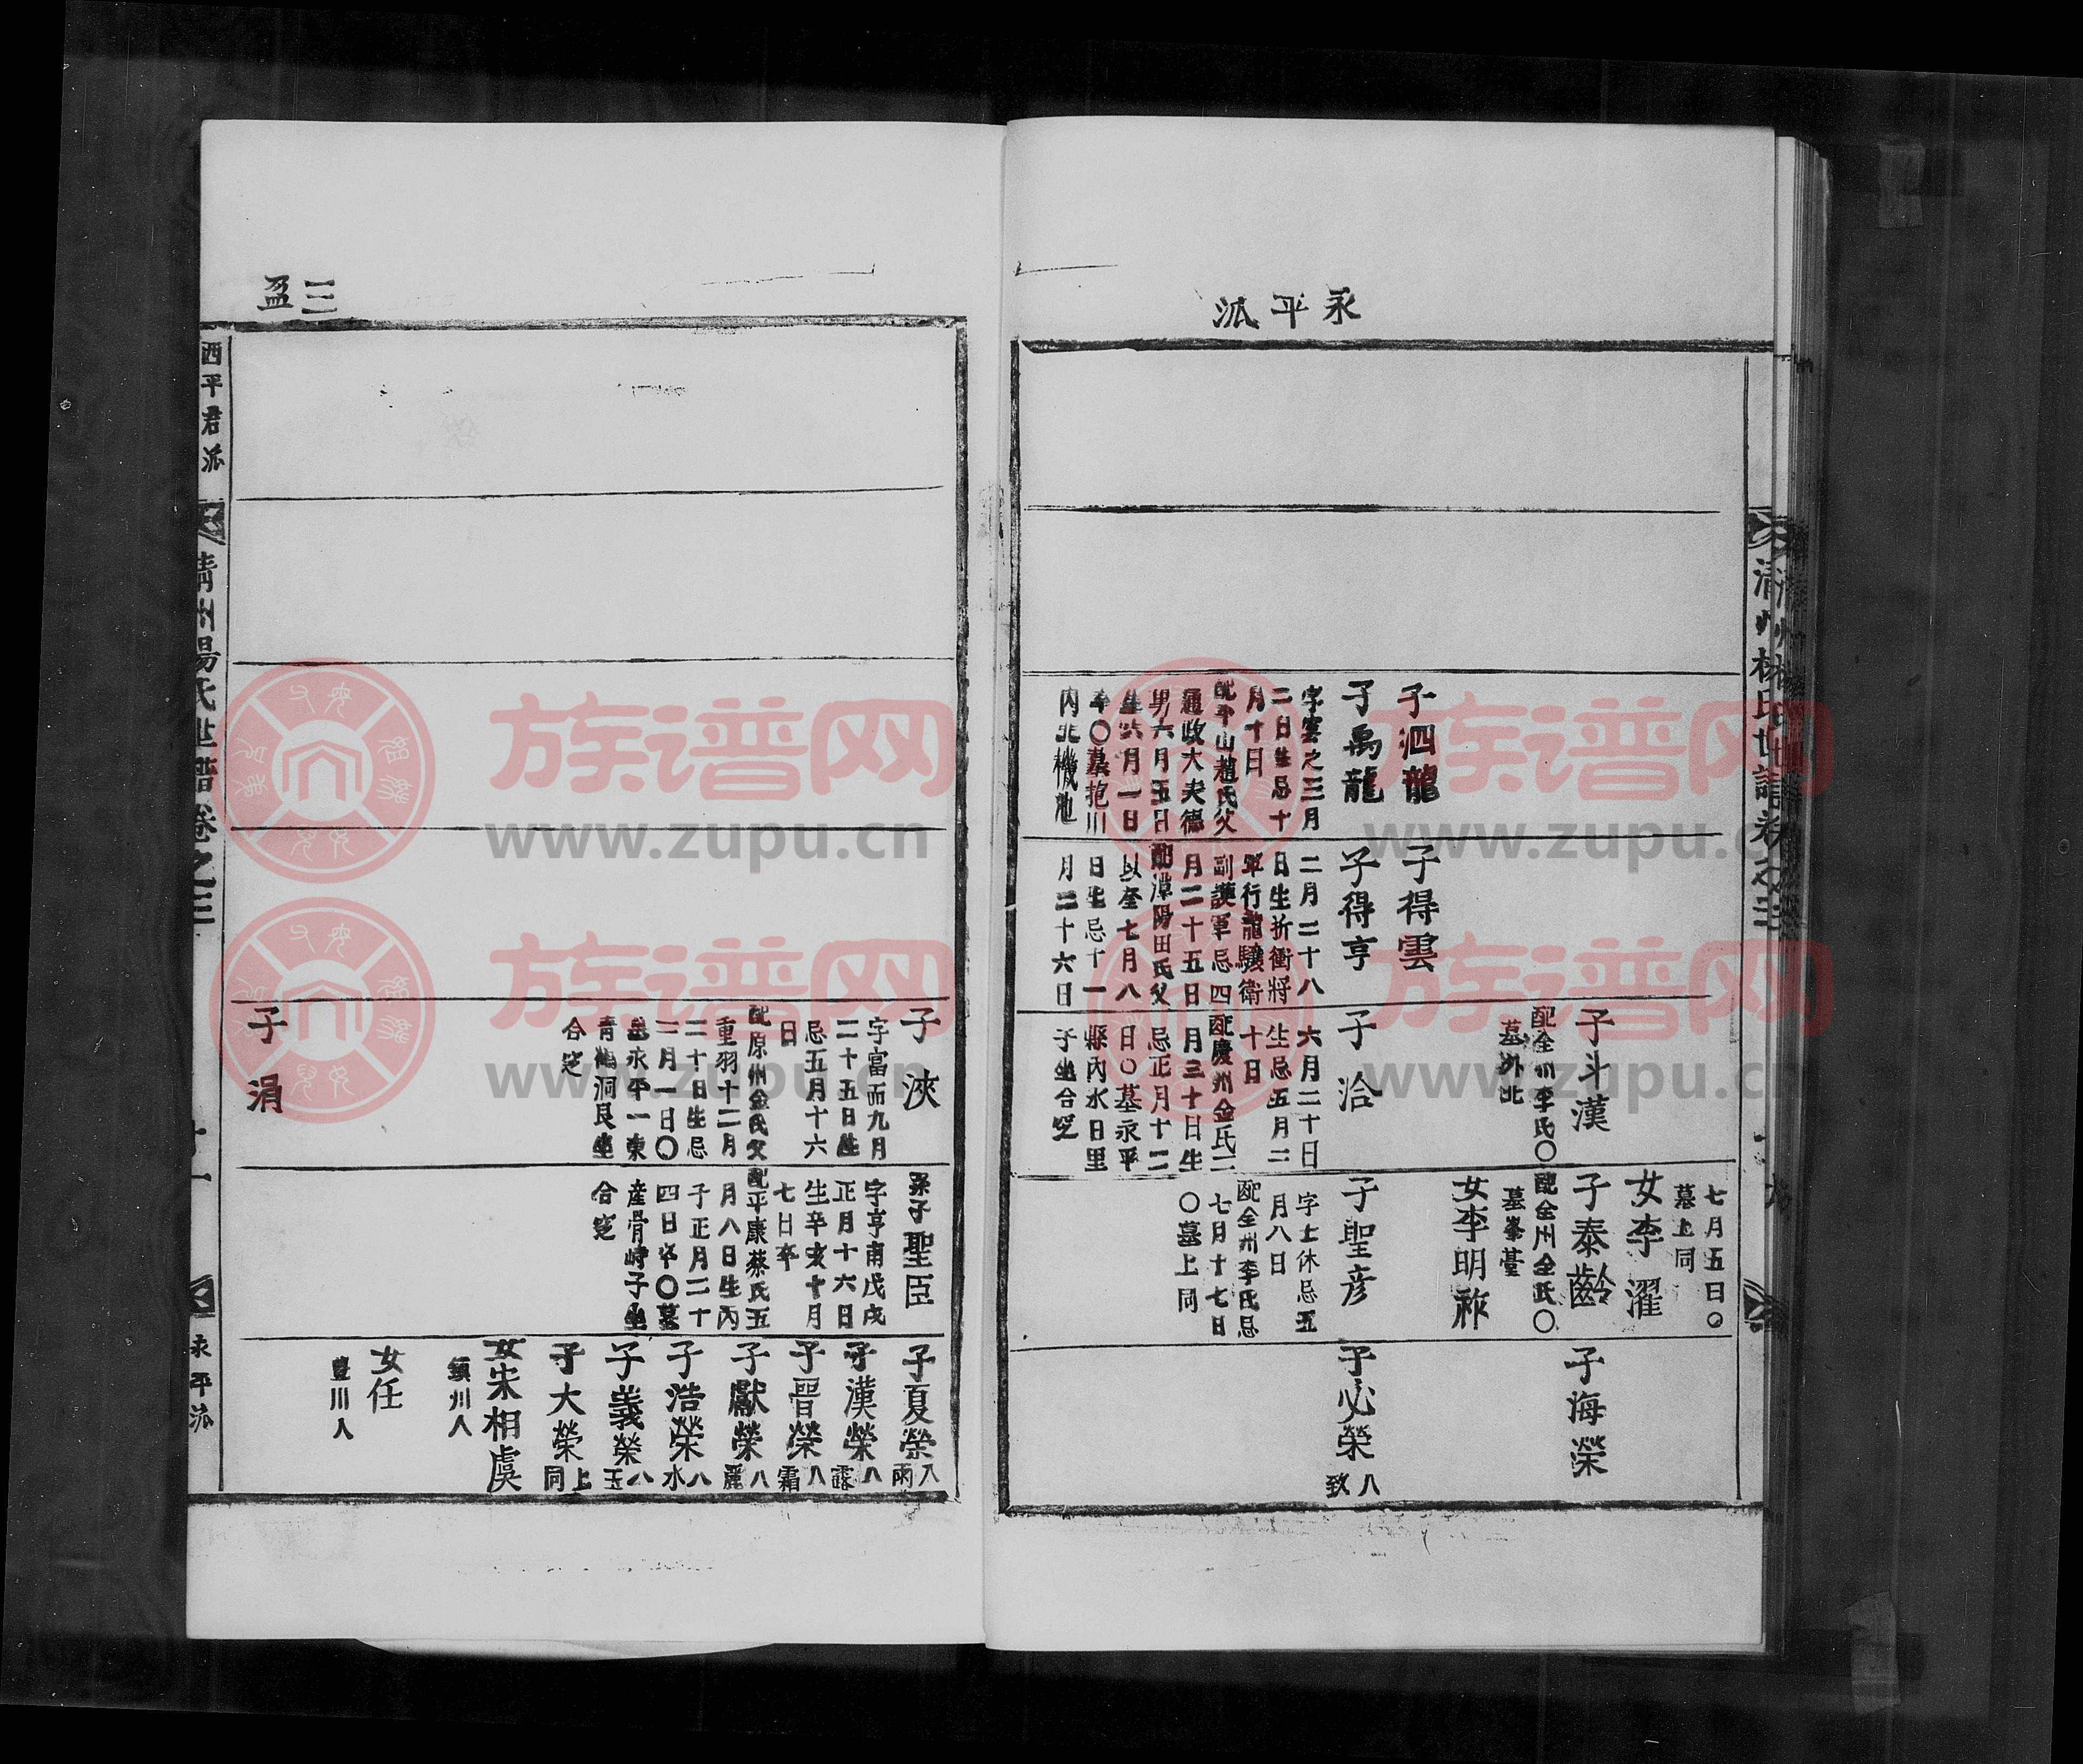 永平派
子泗龍
子禹龍
字雲之三月
二日生忌十
月十日
配平山趙氏父
通政大夫德
男六月五日
生六月一日
卒〇墓抱川
內北機池
子得雲
子得亨
二月二十八
日生折衝將
軍行龍驤衛
副護軍忌四
月二十五日
配潭陽田氏父
以奎七月八
日生忌十一
月二十六日
子斗漢
配全州李氏〇
墓外北
子洽
六月二十日
生忌五月二
十日
配慶州金氏二
月三十日生
忌正月十二
日〇墓永平
縣內水日里
子坐合窆
七月五日〇
墓上同
女李濯
子泰齡
配金州金氏〇
墓峯臺
女李明祚
子聖彥
字士休忌五
月八日
配全州李氏忌
七月十七日
〇墓上同
子海榮
子必榮
八
致
三
盈
西平君派
清州楊氏世譜卷之三
十一
永平派
子浹
字富而九月
二十五日生
忌五月十六
日
配原州金氏父
重羽十二月
二十日生忌
二月一日〇
墓永平一東
青鶴洞艮坐
合窆
子涓
系子聖臣
字亨南戊戌
正月十六日
生辛亥十月
七日卒
配平康蔡氏五
月八日生丙
子正月二十
四日卒〇墓
產骨峙子坐
合窆
子夏榮
八
雨
子漢榮
八
露
子晉榮
八
霜
子獻榮
八
麗
子浩榮
八
水
子義榮
八
玉
子大榮
上
同
女宋相虞
鎮州人
女任
豐川人
族谱网
www.zupu.cn
族谱网
www.zupu.cn
族谱网
www.zupu.cn
族谱网
www.zupu.cn